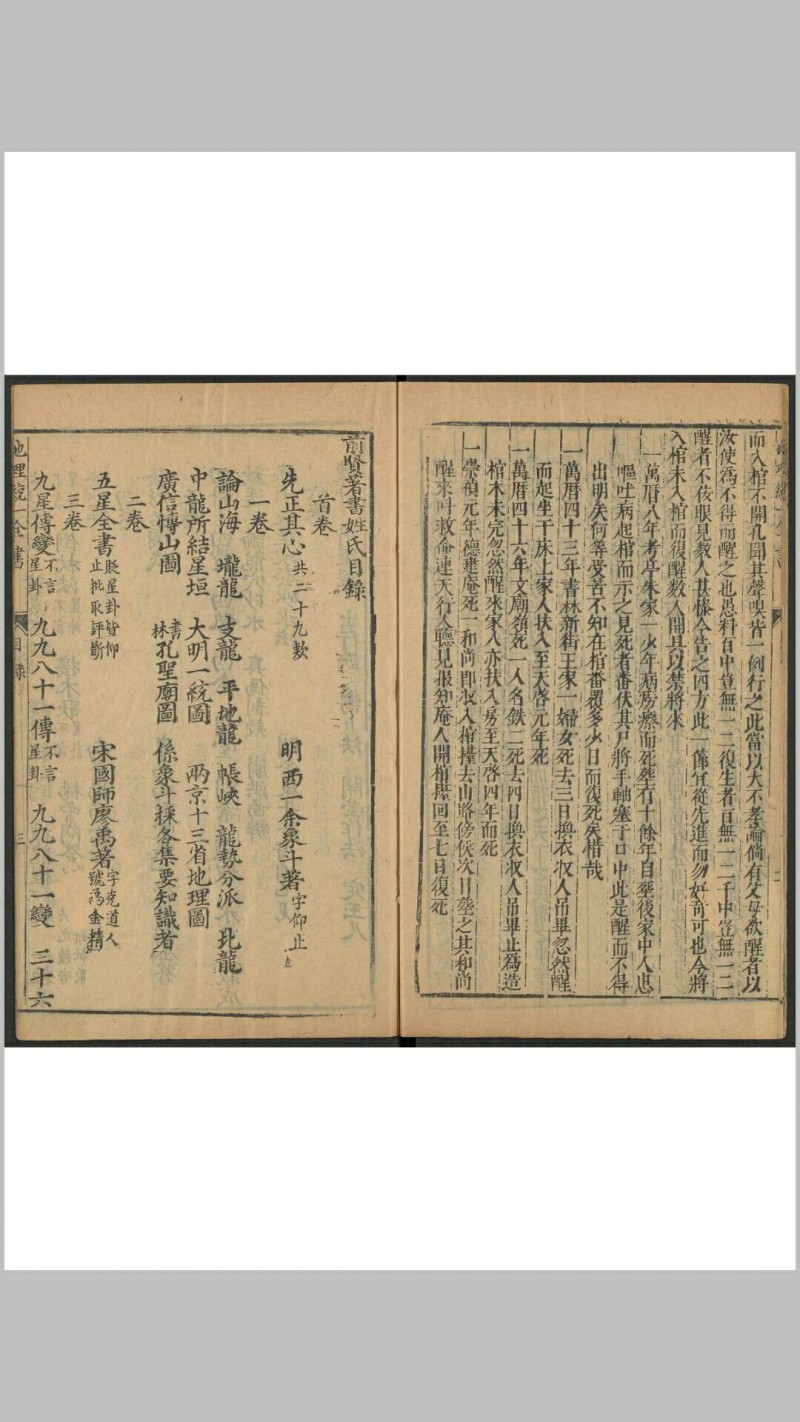 而入棺不開孔聞其聲嗅皆一例行之此當以大不孝論倘有父母欲醒者以
汝使為不得而醒之也愚料百中豈無一二復生者百無一二千中豈無一二
醒者不佞眼見数人甚慘今告之四方此一節宜從先進而勿好奇可也今將
入棺未入棺而復醒数人開具以禁將來
一萬曆八年考亭朱家一少年病癆瘵而死塟有十餘年自塟後家中人患
嘔吐病起棺而示之見死者番伏其尸將手軸塞于口中此是醒而不得
出明矣何等受苦不知在棺番覆多少日而復死矣惜哉
一萬曆四十三年書林新街王家一婦女死去三日換衣収人吊畢忽然醒
而起坐于床上家人扶入至天啓元年死
一萬曆四十六年文廟嶺死一人名鉄二死去四日換衣収人吊畢止為造
棺木未完忽然醒來家人亦扶入房至天啓四年而死
一崇禎元年德建庵死一和尚即収入棺擡去山路傍俟次日塟之其和尚
醒來叫救命連天行人聽見报知庵人開棺擡回至七日復死
二
前賢著書姓氏目錄
首卷
先正其心 共二十九款 明西一余象斗著 字仰止
一卷
論山海 壠龍 支龍 平地龍 帳峽 龍勢分派 比龍
中龍所結星垣 大明一統圖 兩京十三省地理圖
廣信愽山圖 書林孔聖廟圖 係象斗採各集要知識者
二卷
五星全書 貶星卦皆仰止批取評斷 宋國師廖禹著 字堯道人號為金精
三卷
九星傳變 不言星卦 九九八十一傳 不言星卦 九九八十一變 三十六
地理統一全書 目錄 三